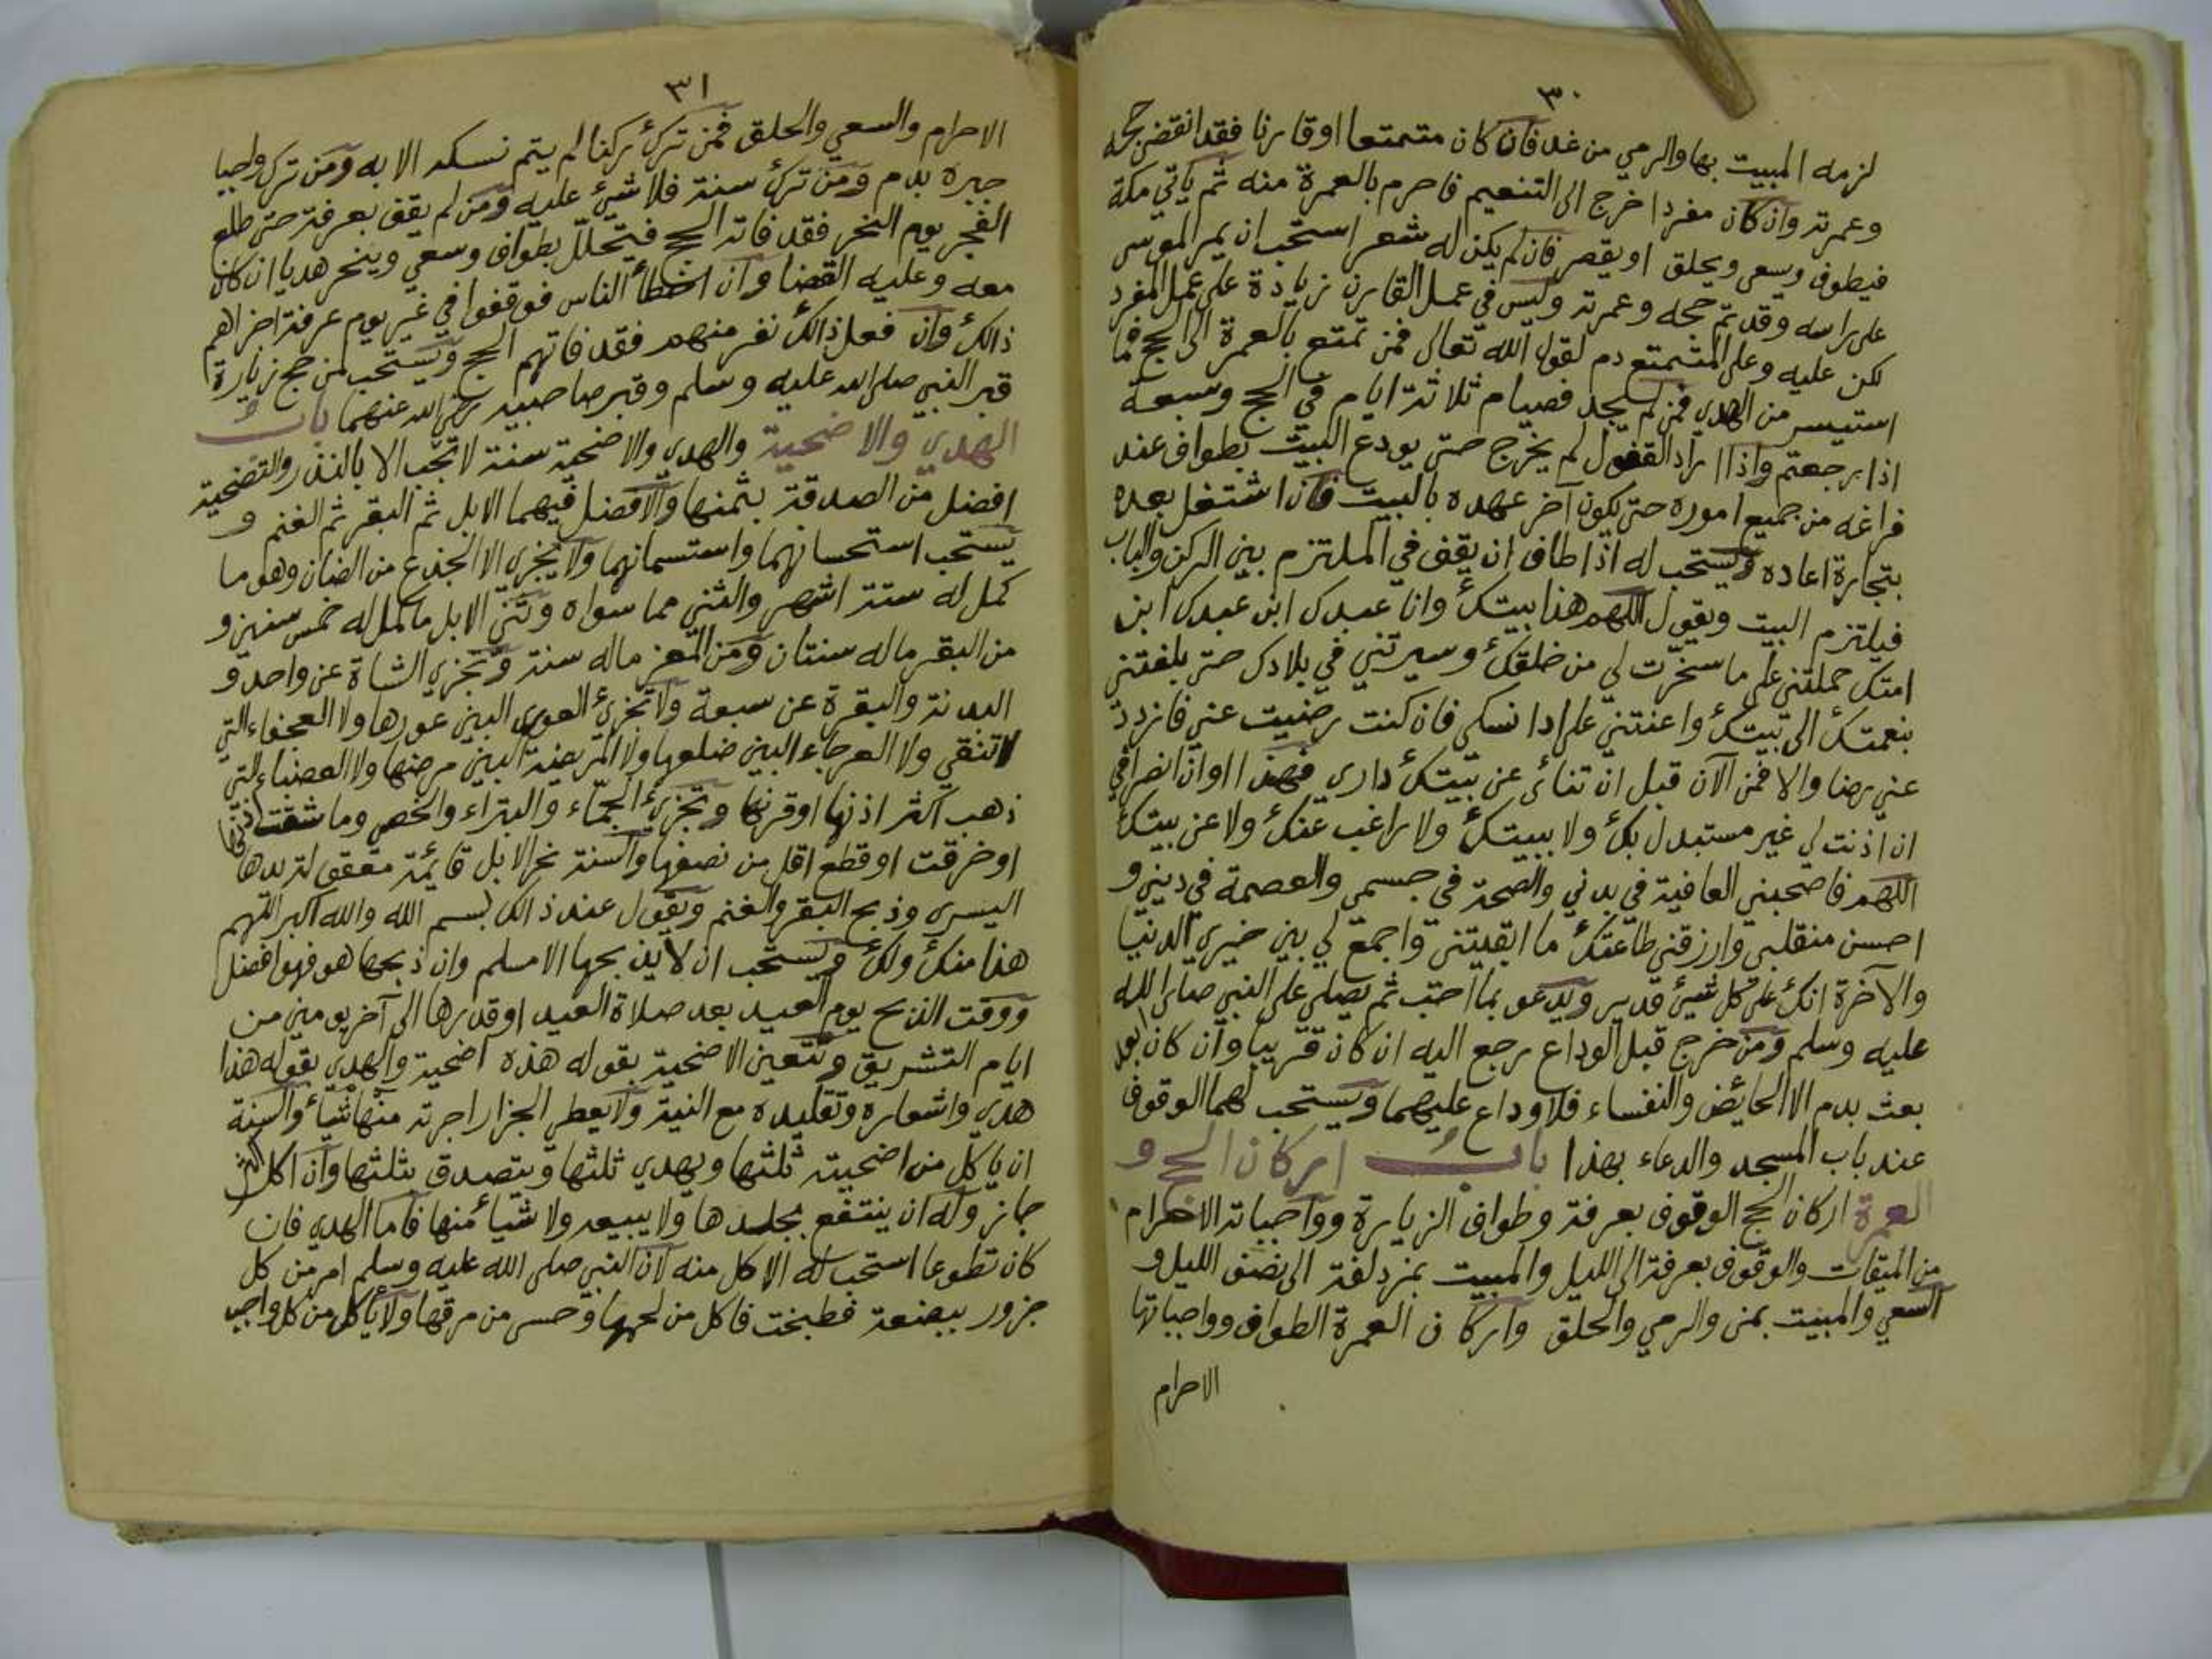 ٣٠
لزمه المبيت بها والرمي من غد فان كان متمتعا او قارنا فقد انقضى حجه
وعمرته وان كان مفردا خرج الى التنعيم فاحرم بالعمرة منه ثم ياتي مكة
فيطوف ويسعى ويحلق او يقصر فان لم يكن له شعر استحب ان يمر الموسى
على راسه وقد تم حجه وعمرته وليس في عمل القارن زيادة على عمل المفرد
لكن عليه وعلى المتمتع دم لقول الله تعالى فمن تمتع بالعمرة الى الحج فما
استيسر من الهدي فمن لم يجد فصيام ثلاثة ايام في الحج وسبعة
اذا رجعتم واذا اراد القفول لم يخرج حتى يودع البيت بطواف عند
فراغه من جميع اموره حتى يكون آخر عهده بالبيت فان اشتغل بعده
بتجارة اعاده ويستحب له اذا طاف ان يقف في الملتزم بين الركن والباب
فيلتزم البيت ويقول اللهم هذا بيتك وانا عبدك ابن عبدك ابن
امتك حملتني على ما سخرت لي من خلقك وسيرتني في بلادك حتى بلغتني
بنعمتك الى بيتك واعنتني على ادا نسكي فان كنت رضيت عني فازدد
عني رضا والا فمن الآن قبل ان تنائ عن بيتك داري فهذا اوان انصرافي
ان اذنت لي غير مستبدل بك ولا ببيتك ولا راغب عنك ولا عن بيتك
اللهم فاصحبني العافية في بدني والصحة في جسمي والعصمة في ديني و
احسن منقلبي وارزقني طاعتك ما ابقيتني واجمع لي بين خيري الدنيا
والآخرة انك على كل شيئ قدير ويدعو بما احب ثم يصلي على النبي صلى الله
عليه وسلم ومن خرج قبل الوداع رجع اليه ان كان قريبا وان كان بعد
بعث بدم الا الحائض والنفساء فلا وداع عليهما ويستحب لهما الوقوف
عند باب المسجد والدعاء بهذا باب اركان الحج و
العمرة اركان الحج الوقوف بعرفة وطواف الزيارة وواجباته الاحرام
من الميقات والوقوف بعرفة الى الليل والمبيت بمزدلفة الى نصف الليل و
السعي والمبيت بمنى والرمي والحلق واركان العمرة الطواف وواجباتها
الاحرام
٣١
الاحرام والسعي والحلق فمن ترك ركنا لم يتم نسكه الا به ومن ترك واجبا
جبره بدم ومن ترك سنة فلا شيئ عليه ومن لم يقف بعرفة حتى طلع
الفجر يوم النحر فقد فاته الحج فيتحلل بطواف وسعي وينحر هديا ان كان
معه وعليه القضا وان اخطأ الناس فوقفوا في غير يوم عرفة اجزاهم
ذالك وان فعل ذالك نفر منهم فقد فاتهم الحج ويستحب لمن حج زيارة
قبر النبي صلى الله عليه وسلم وقبر صاحبيه رضي الله عنهما باب
الهدي والاضحية والهدي والاضحية سنة لا تجب الا بالنذر والتضحية
افضل من الصدقة بثمنها والافضل فيهما الابل ثم البقر ثم الغنم و
يستحب استحسانهما واستسمانهما ولا يجزي الا الجذع من الضان وهو ما
كمل له ستة اشهر والثني مما سواه وثني الابل ما كمل له خمس سنين و
من البقر ماله سنتان ومن المعز ماله سنة وتجزي الشاة عن واحد و
البدنة والبقرة عن سبعة ولا تجزئ العورى البين عورها ولا العجفاء التي
لا تنقي ولا العرجاء البين ضلعها ولا المريضة البين مرضها ولا العضباء التي
ذهب اكثر اذنها او قرنها وتجزئ الجماء والبتراء والخصي وما شقت اذنها
او خرقت او قطع اقل من نصفها والسنة نحر الابل قائمة معقولة يدها
اليسرى وذبح البقر والغنم ويقول عند ذالك بسم الله والله اكبر اللهم
هذا منك ولك ويستحب ان لا يذبحها الا مسلم وان ذبحها هو فهو افضل
ووقت الذبح يوم العيد بعد صلاة العيد او قدرها الى آخر يومين من
ايام التشريق وتتعين الاضحية بقوله هذه اضحية والهدي بقوله هذا
هدي واشعاره وتقليده مع النية ولا يعطى الجزار اجرته منها شيأ والسنة
ان ياكل من اضحيته ثلثها ويهدي ثلثها ويتصدق بثلثها وان اكل اكثر
جاز وله ان ينتفع بجلدها ولا يبيعه ولا شيأ منها فاما الهدي فان
كان تطوعا استحب له الاكل منه لان النبي صلى الله عليه وسلم امر من كل
جزور ببضعة فطبخت فاكل من لحمها وحسى من مرقها ولا ياكل من كل واجب